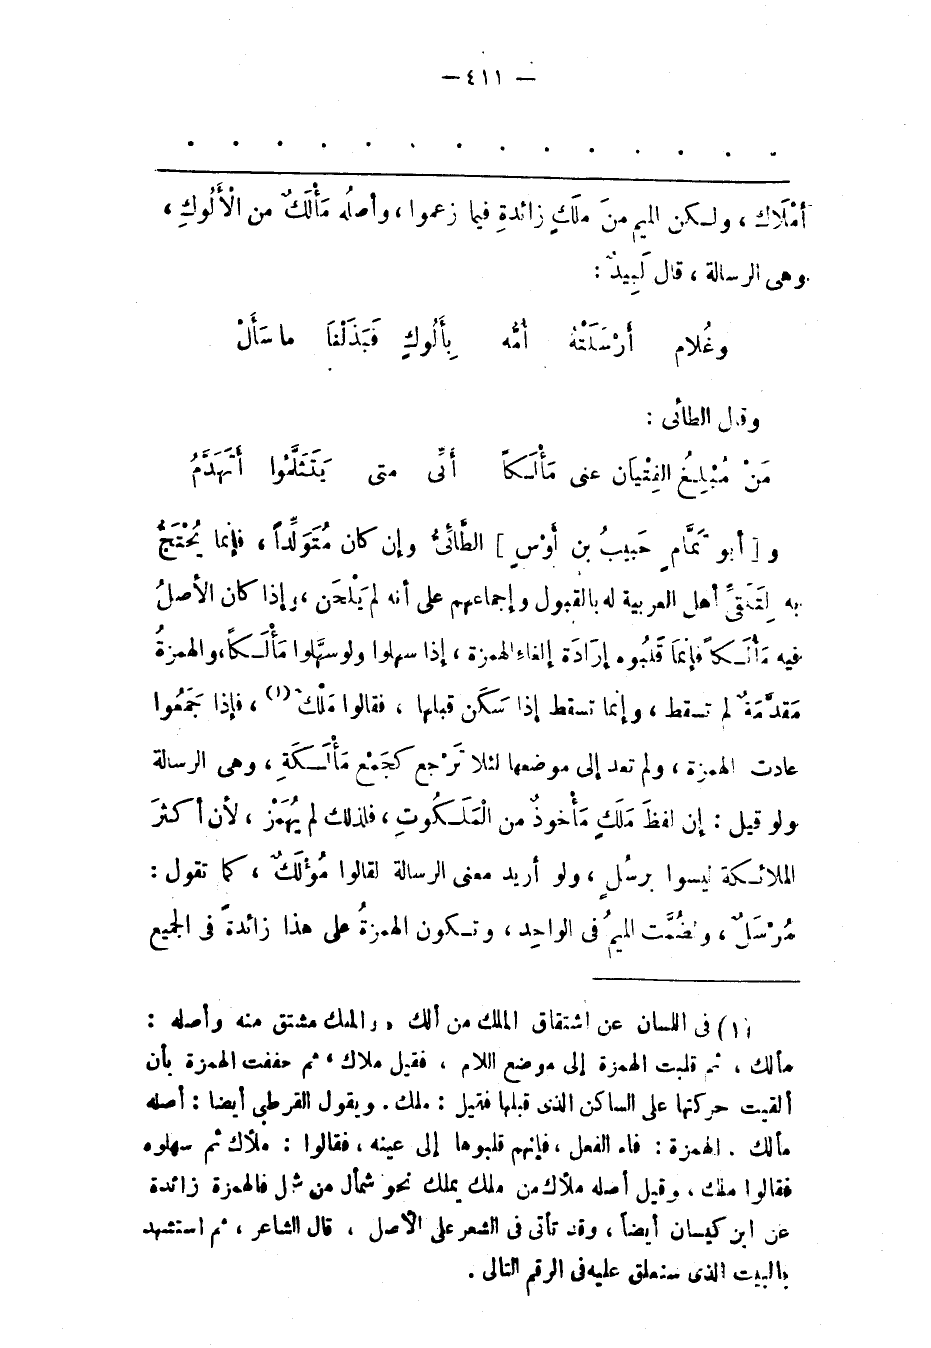 — ٤١١ —
أَمْلَاك ، ولـكن الميم منَ مَلَكٍ زائدةِ فيما زعموا ، وأصلُه مَأْلَكٌ من الْأَلُوكِ ،
وهى الرسالة ، قال لَبِيدٌ :
وغُلام أَرْسَلَتْهُ أُمُّه بِأَلُوكٍ فَبَذَلْنَا ما سَأَلْ
وقال الطائى :
مَنْ مُبْلِغُ الفِتْيَان عنى مَأْلَـكاً أَنِّى متى يَتَثَلَّمُوا أَتَهَدَّمُ
و [ أبو تَمَّامٍ حَبِيبُ بن أَوْسٍ ] الطَّائىُّ وإن كان مُتَوَلِّداً ، فإنما يُحْتَجُّ
به لِتَلَقِّى أهل العربية له بالقبول وإجماعهم على أنه لم يَلْحَن ، وإذا كان الأصلُ
فيه مَأْلَـكاً فإنمَا قَلَبُوه إرَادَة إلغاء الهمزة ، إذا سهلوا ولو سهَّلوا مَأْلَـكاً ، والهمزةُ
مَقدَّمَةٌ لم تسقط ، وإنما تسقط إذا سَكَن قبلها ، فقالوا مَلْك (١) ، فإذا جَمَعُوا
عادت الهمزة ، ولم تعد إلى موضعها لئلا تَرْجع كجَمْع مَأْلَـكَةٍ ، وهى الرسالة
ولو قيل : إن لفظَ مَلَكٍ مَأْخوذٌ من الْمَلَـكُوتِ ، فلذلك لم يُهْمَزْ ، لأن أكثرَ
الملائـكة ليسوا برسُلٍ ، ولو أريد معنى الرسالة لقالوا مُؤْلَكٌ ، كما تقول :
مُرْسَلٌ ، ولضُمَّت الميمُ فى الواحِد ، وتـكون الهمزةُ على هذا زائدةً فى الجميع
(١) فى اللسان عن اشتقاق الملك من ألك « والملك مشتق منه وأصله :
مألك ، ثم قلبت الهمزة إلى موضع اللام ، فقيل ملاك ، ثم خففت الهمزة بأن
ألقيت حركتها على الساكن الذى قبلها فقيل : ملك . ويقول القرطبى أيضا : أصله
مألك . الهمزة : فاء الفعل ، فإنهم قلبوها إلى عينه ، فقالوا : ملأك ثم سهلوه
فقالوا ملك ، وقيل أصله ملأك من ملك يملك نحو شمأل من شمل فالهمزة زائدة
عن ابن كيسان أيضاً ، وقد تأتى فى الشعر على الأصل ، قال الشاعر ، ثم استشهد
بالبيت الذى سنعلق عليه فى الرقم التالى .